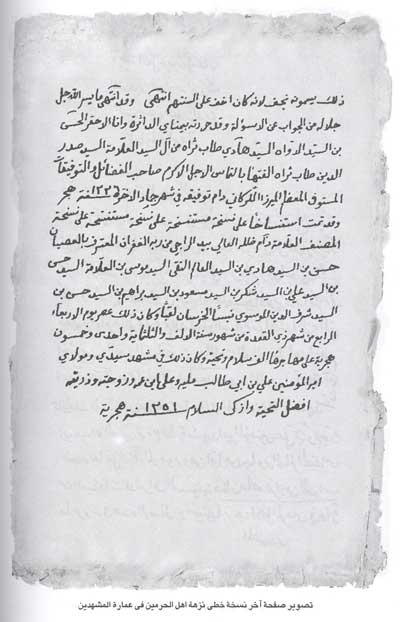 ذلك يسمونه نجف لانه كان اخف على السنتهم انتهى وقد انتهى ما يسر الله جل
جلاله من الجواب عن الاسولة وقد حررته بيمناي الداثرة وانا الاحقر الحسن
بن السيد الاواه السيد هادي طاب ثراه من آل السيد العلامة السيد صدر
الدين طاب ثراه الفتها بالتماس الاجل الاكرم صاحب الفضائل والتوفيقات
المستوفي المعظم الميرزا دام توفيقه في شهر جماد الاخرى ١٣٢٦ سنة هجر
وقد تمت استنساخا على نسخة مستنسخة على نسخة مستنسخة على نسخة
المصنف العلامة دام ظله العالي بيد الراجي من ربه الغفران المعترف بالعصيان
حسن بن السيد هادي بن السيد العالم التقي السيد موسى بن العلامة السيد حسن
بن السيد علي بن السيد شكر بن السيد مسعود بن السيد ابراهيم بن السيد حسن بن
السيد شرف الدين الموسوي نسبا الخرسان لقبا وكان ذلك عصر يوم الاربعاء
الرابع من شهر ذي القعدة من شهور سنة الالف والثلثماية واحدى وخمسون
هجرية على مهاجرها الف سلام وتحية وكان ذلك في مشهد سيدي ومولاي
امير المؤمنين علي بن ابي طالب عليه وعلى ابن عمه وزوجته وذريته
افضل التحية وازكى السلام ١٣٥١ سنة هجرية
تصویر صفحة آخر نسخة خطی نزهة اهل الحرمین فی عمارة المشهدین